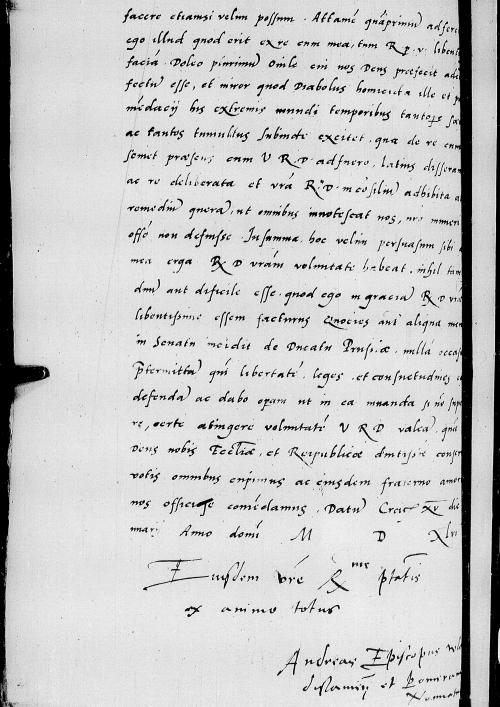 facere etiamsi velim possum. Attamē quāprimū adfero
ego illud quod erit ex re cum mea, tum R P. v. libent
faciā. Doleo plurimū Ovile cui nos Deus præfecit ade
fectū esse, et miror quod Diabolus homicida ille et p
mēdacij his extremis mundi temporibus tantoꝑe
ac tantos tumultus subinde excitet, qua de re cum
semet præsens cum V R D. adfuero, latius disseram
ac re deliberata et vrā R. D. in cōsiliū adhibita
remediū querā, ut omnibus innotescat nos,
offō non defuisse. In summa hoc velim persuasum sibi
mea erga R D vrām voluntate habeat, nihil tam
dm̄ aut dificile esse quod ego in graciā R D vrē
libentissime essem facturus Quocies aūt aliqua men
in Senatu incidit de Ducatu Prussiæ, nulla occasi
p̄termittā quī libertatē, leges, et consuetudines
defendā ac dabo oꝑam ut in ea muanda si nō
re, certe attingere volūtatē V R D valeā, quā
Deus nobis Eccliæ, et Reipublicæ diutissie conser
votis omnibus cupimus ac eiusdem fraterno amor
nos officiose comēdamus. Datū Crciæ xv die
marij Anno domī M D Xlvi
Eiusdem vrē R me ptatis
ex animo totus
Andreas Episcopus
et Pomeran